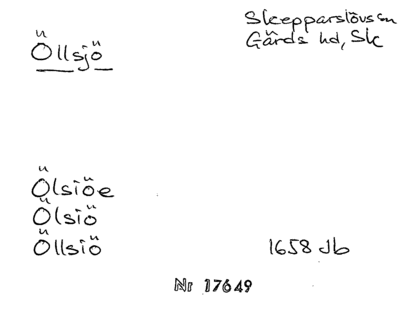 Skepparslövs sn
Öllsjö
Gärds hd, Sk
Ölsiöe
Ölsiö
Öllsiö 1658 Jb
Nr 17649